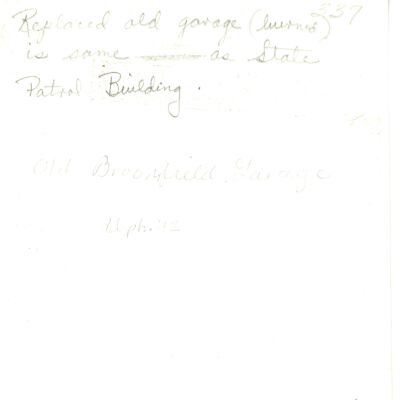 337
Replaced old garage (burned)
is same as State
Patrol Building.
Old Broomfield Garage